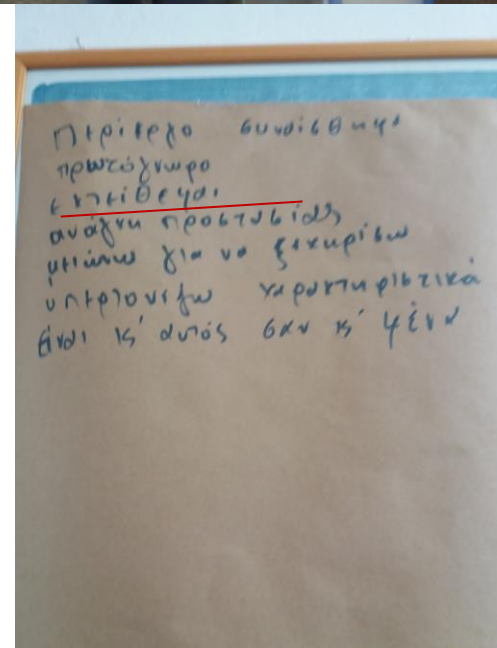 Περίεργο συναίσθημα
πρωτόγνωρο
εκτίθεμαι
ανάγκη προστασίας
μειώνω για να ξεχωρίσω
υπερτονίζω χαρακτηριστικά
είναι κι' αυτός σαν κι' μένα